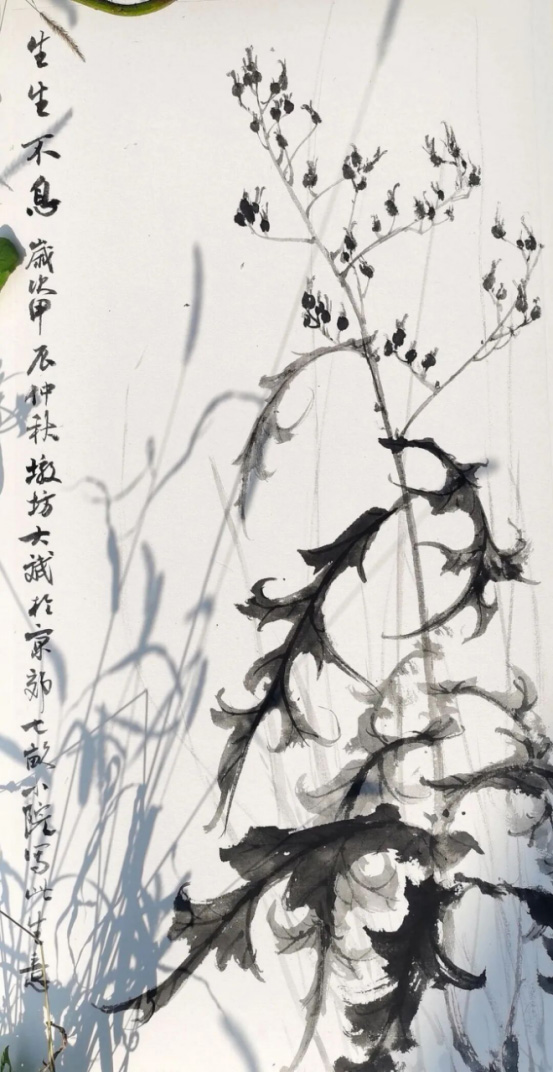 生生不息 歲次甲辰仲秋墩坊大斌於京郊七畝小院寫此生意